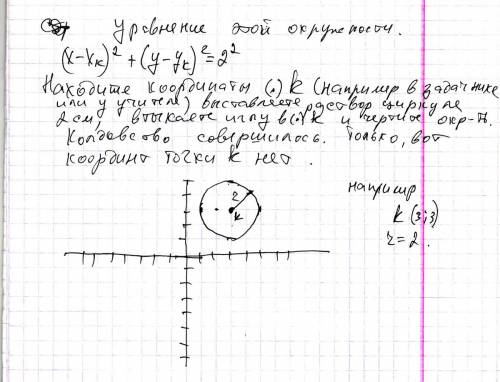 уравнение этой окружности.
(x-x_k)² + (y-y_k)² = 2²
Находите координаты (.) k (например в задачнике
или у учителя) выставляете раствор циркуля
2 см, втыкаете иглу в (.) k и чертите окр-ть.
Колдовство совершилось. Только, вот
координат точки k нет.
например
k (3;3)
r=2.
2
k